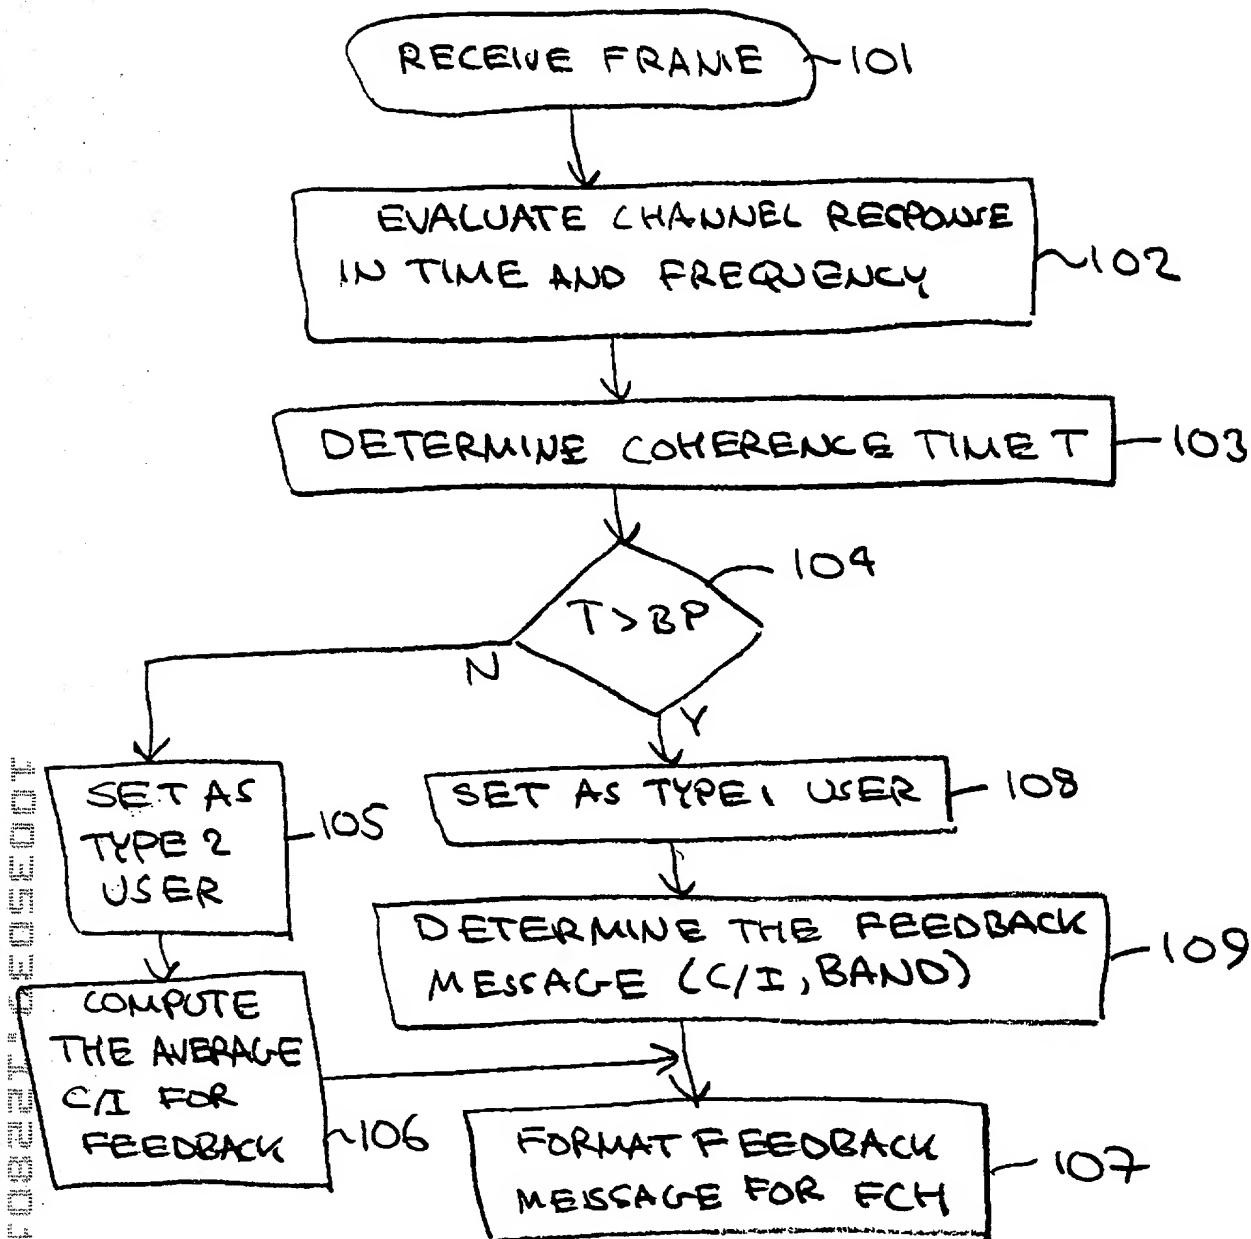 RECEIVE FRAME
101
EVALUATE CHANNEL RESPONSE
IN TIME AND FREQUENCY
102
DETERMINE COHERENCE TIME T
103
T > BP
104
N
Y
SET AS
TYPE 2
USER
105
SET AS TYPE 1 USER
108
DETERMINE THE FEEDBACK
MESSAGE (C/I, BAND)
109
COMPUTE
THE AVERAGE
C/I FOR
FEEDBACK
106
FORMAT FEEDBACK
MESSAGE FOR FCH
107